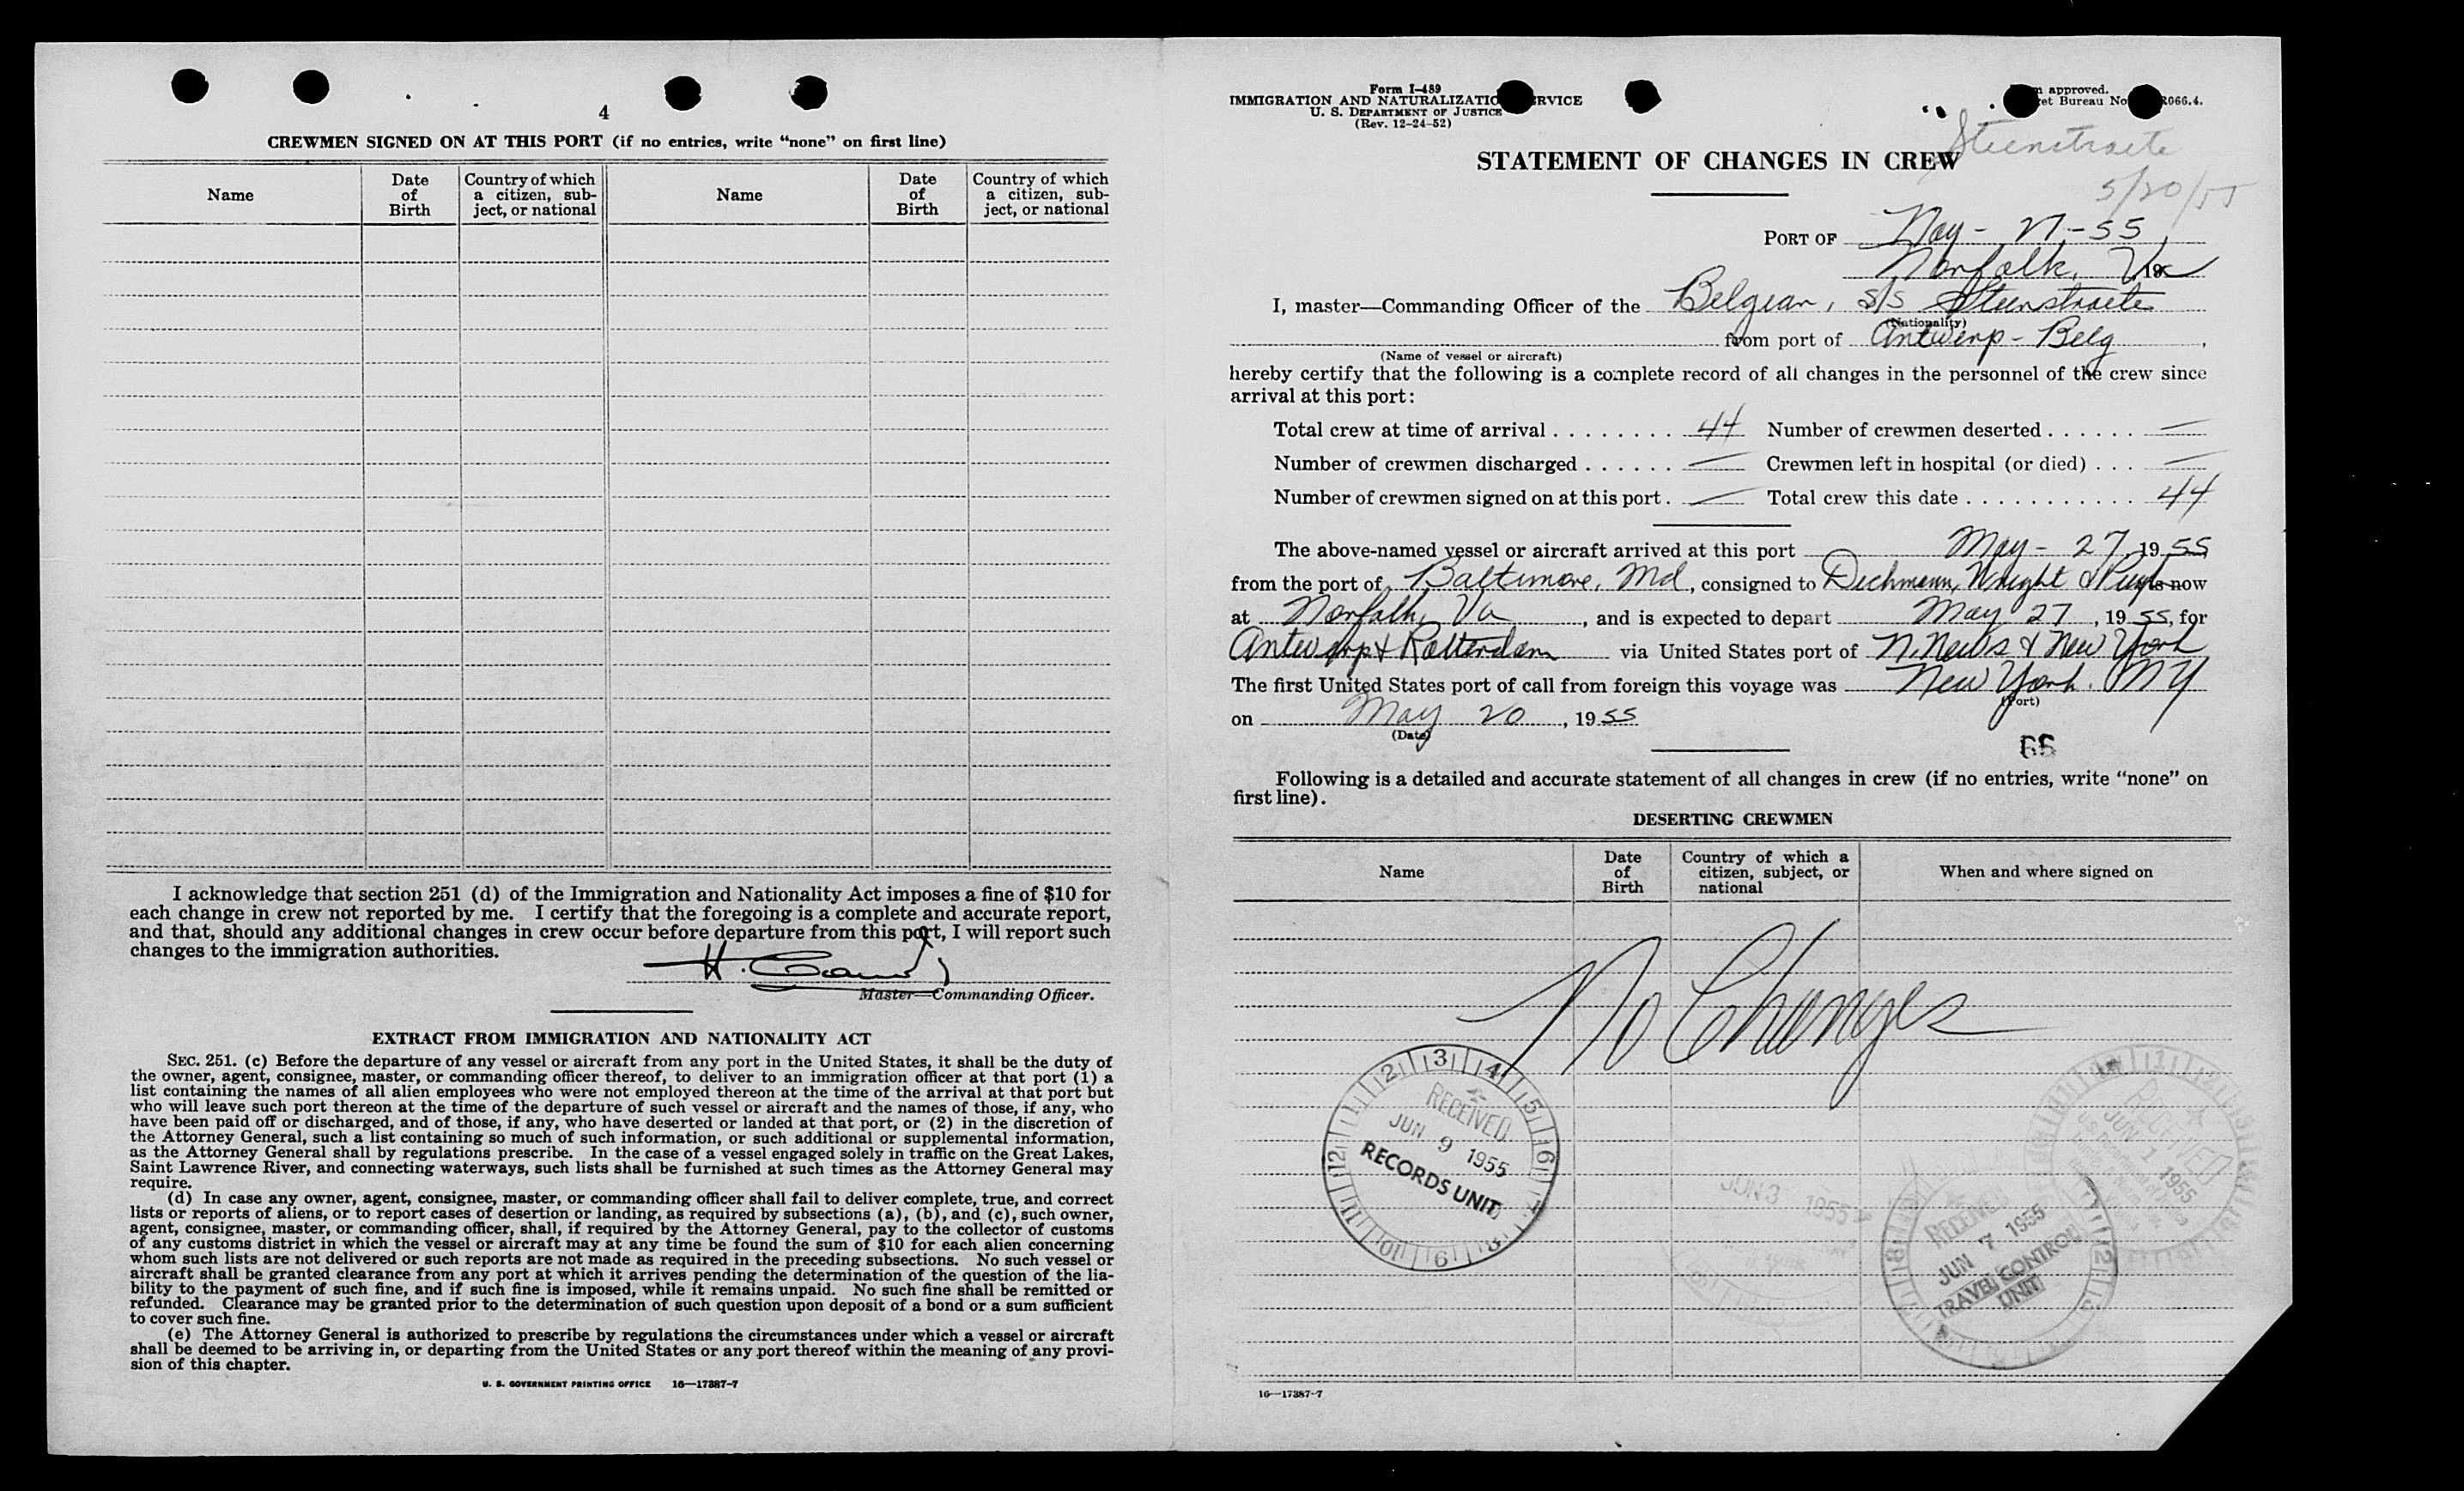 4
CREWMEN SIGNED ON AT THIS PORT (if no entries, write "none" on first line)
Name
Date of Birth
Country of which a citizen, subject, or national
Name
Date of Birth
Country of which a citizen, subject, or national
I acknowledge that section 251 (d) of the Immigration and Nationality Act imposes a fine of $10 for
each change in crew not reported by me. I certify that the foregoing is a complete and accurate report,
and that, should any additional changes in crew occur before departure from this port, I will report such
changes to the immigration authorities.
H.
Master—Commanding Officer.
EXTRACT FROM IMMIGRATION AND NATIONALITY ACT
SEC. 251. (c) Before the departure of any vessel or aircraft from any port in the United States, it shall be the duty of
the owner, agent, consignee, master, or commanding officer thereof, to deliver to an immigration officer at that port (1) a
list containing the names of all alien employees who were not employed thereon at the time of the arrival at that port but
who will leave such port thereon at the time of the departure of such vessel or aircraft and the names of those, if any, who
have been paid off or discharged, and of those, if any, who have deserted or landed at that port, or (2) in the discretion of
the Attorney General, such a list containing so much of such information, or such additional or supplemental information,
as the Attorney General shall by regulations prescribe. In the case of a vessel engaged solely in traffic on the Great Lakes,
Saint Lawrence River, and connecting waterways, such lists shall be furnished at such times as the Attorney General may
require.
(d) In case any owner, agent, consignee, master, or commanding officer shall fail to deliver complete, true, and correct
lists or reports of aliens, or to report cases of desertion or landing, as required by subsections (a), (b), and (c), such owner,
agent, consignee, master, or commanding officer, shall, if required by the Attorney General, pay to the collector of customs
of any customs district in which the vessel or aircraft may at any time be found the sum of $10 for each alien concerning
whom such lists are not delivered or such reports are not made as required in the preceding subsections. No such vessel or
aircraft shall be granted clearance from any port at which it arrives pending the determination of the question of the lia-
bility to the payment of such fine, and if such fine is imposed, while it remains unpaid. No such fine shall be remitted or
refunded. Clearance may be granted prior to the determination of such question upon deposit of a bond or a sum sufficient
to cover such fine.
(e) The Attorney General is authorized to prescribe by regulations the circumstances under which a vessel or aircraft
shall be deemed to be arriving in, or departing from the United States or any port thereof within the meaning of any provi-
sion of this chapter.
U. S. GOVERNMENT PRINTING OFFICE 16—17387-7
Form I-489
IMMIGRATION AND NATURALIZATIO RVICE
U. S. DEPARTMENT OF JUSTICE
(Rev. 12-24-52)
approved.
et Bureau No 066.4.
Steenstraete
5/20/55
STATEMENT OF CHANGES IN CREW
PORT OF May - 27 - 55,
Norfolk, Va 19
I, master—Commanding Officer of the Belgian, S/S Steenstraete
(Nationality)
from port of Antwerp - Belg,
(Name of vessel or aircraft)
hereby certify that the following is a complete record of all changes in the personnel of the crew since
arrival at this port:
Total crew at time of arrival 44 Number of crewmen deserted —
Number of crewmen discharged — Crewmen left in hospital (or died) —
Number of crewmen signed on at this port — Total crew this date 44
The above-named vessel or aircraft arrived at this port May - 27, 1955
from the port of Baltimore, Md, consigned to Dichmann, Wright & Pugh is now
at Norfolk, Va, and is expected to depart May 27, 1955, for
Antwerp & Rotterdam via United States port of N. News & New York
The first United States port of call from foreign this voyage was New York. NY
(Port)
on May 20, 1955
(Date)
66
Following is a detailed and accurate statement of all changes in crew (if no entries, write "none" on
first line).
DESERTING CREWMEN
Name
Date of Birth
Country of which a citizen, subject, or national
When and where signed on
No Changes
RECEIVED
JUN 9 1955
RECORDS UNIT
JUN 3 1955
RECEIVED
JUN 7 1955
TRAVEL CONTROL
UNIT
RECEIVED
JUN 1 1955
16—17387-7